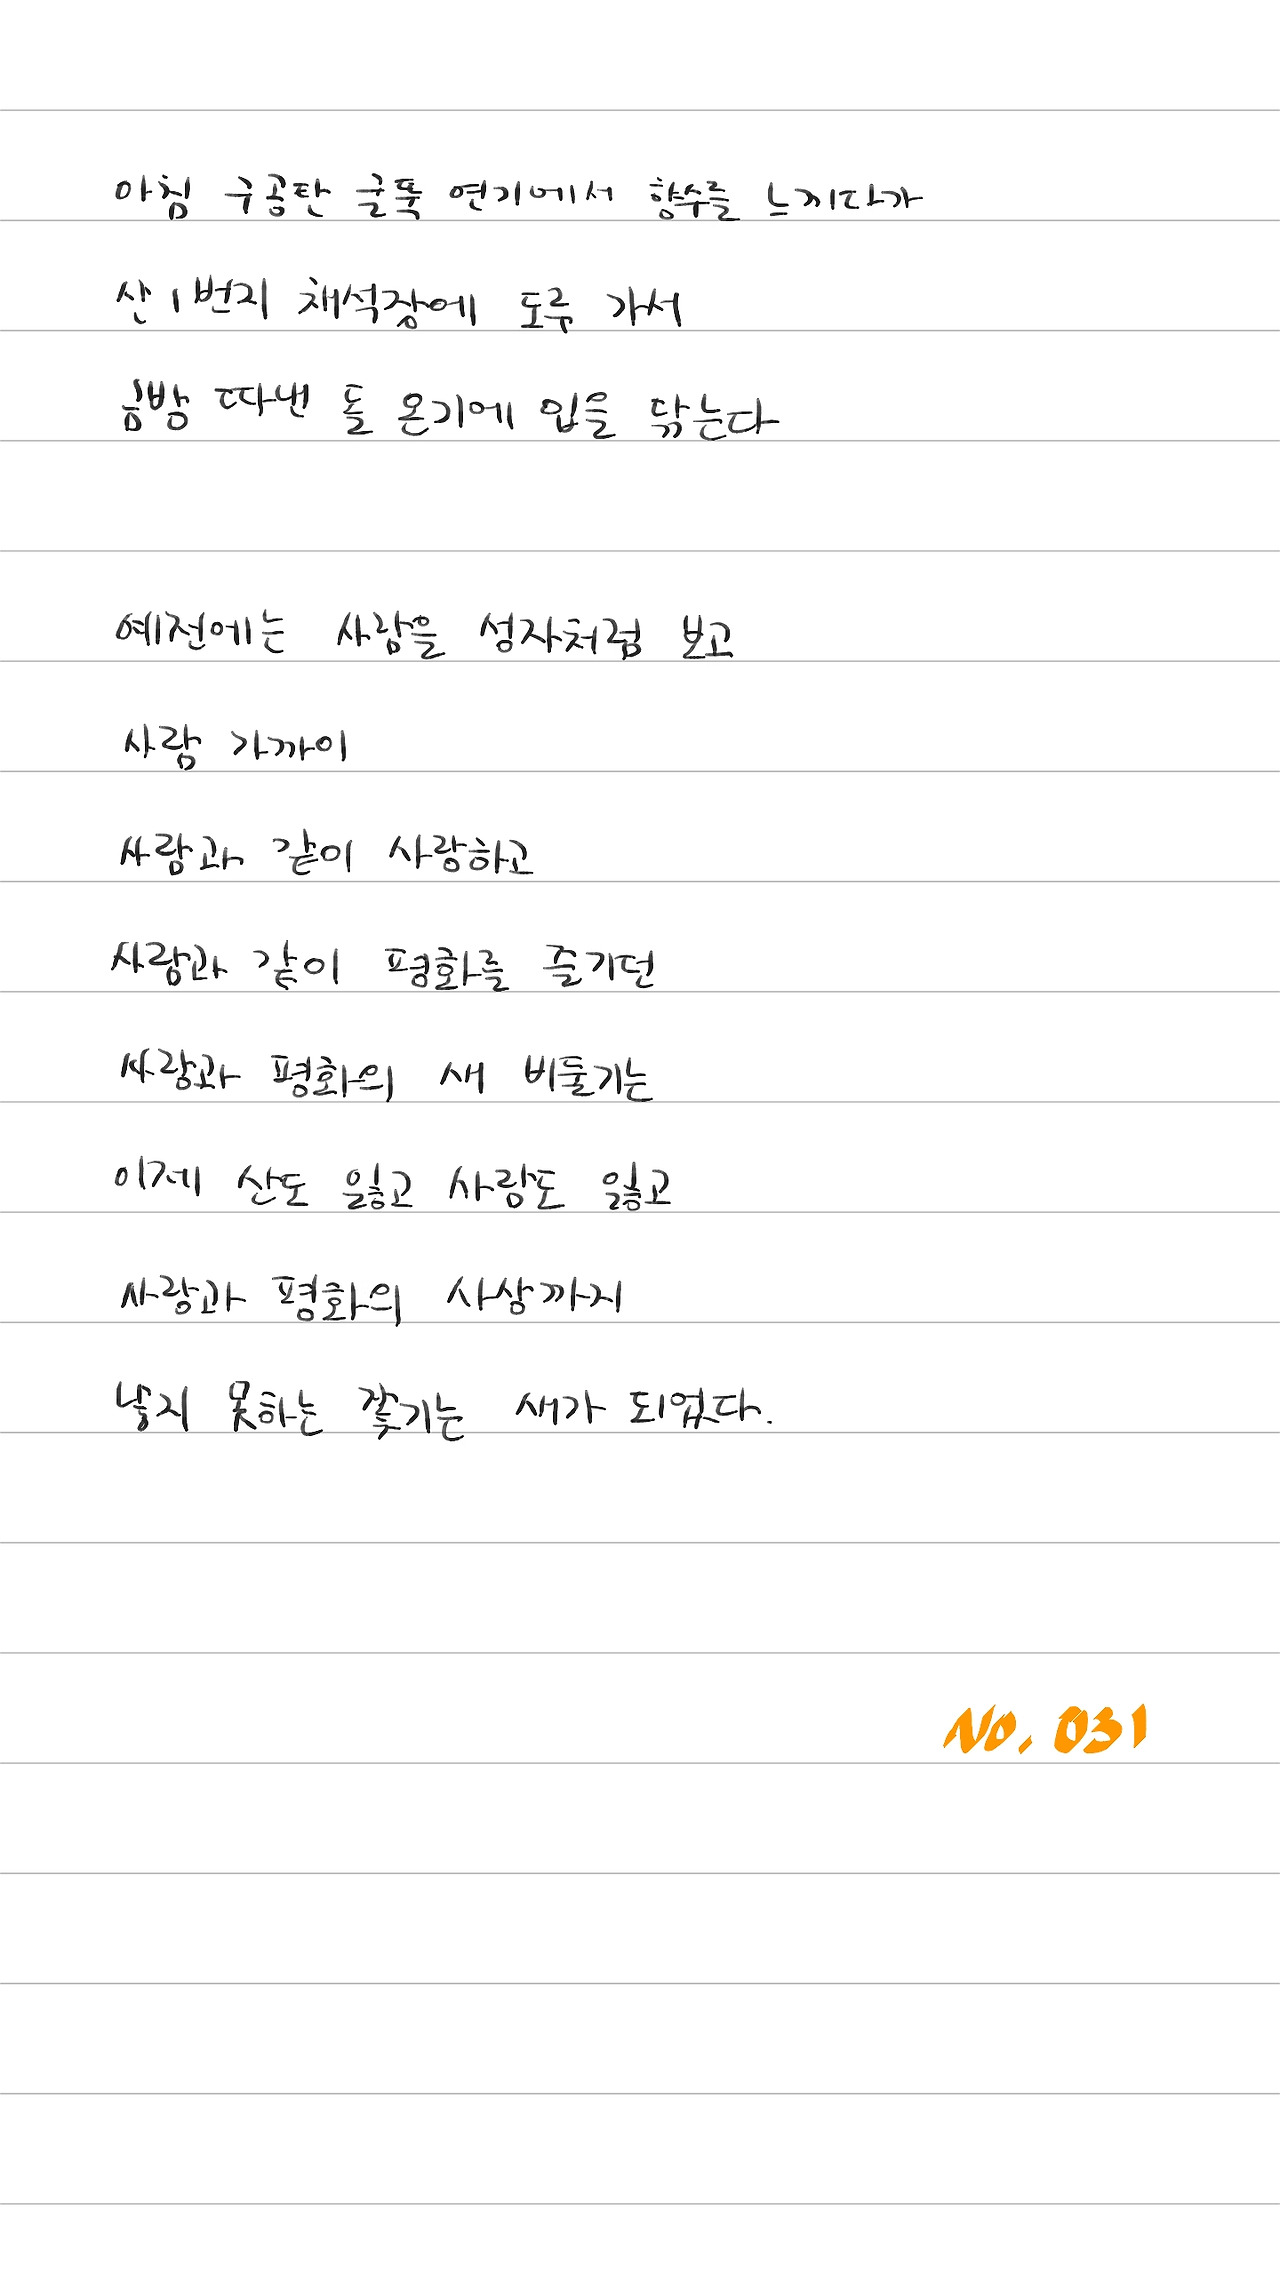 아침 구공탄 굴뚝 연기에서 향수를 느끼다가
산 1번지 채석장에 도루 가서
금방 따낸 돌 온기에 입을 닦는다
예전에는 사람을 성자처럼 보고
사람 가까이
사람과 같이 사랑하고
사람과 같이 평화를 즐기던
사랑과 평화의 새 비둘기는
이제 산도 잃고 사람도 잃고
사랑과 평화의 사상까지
낳지 못하는 쫓기는 새가 되었다.
No. 031